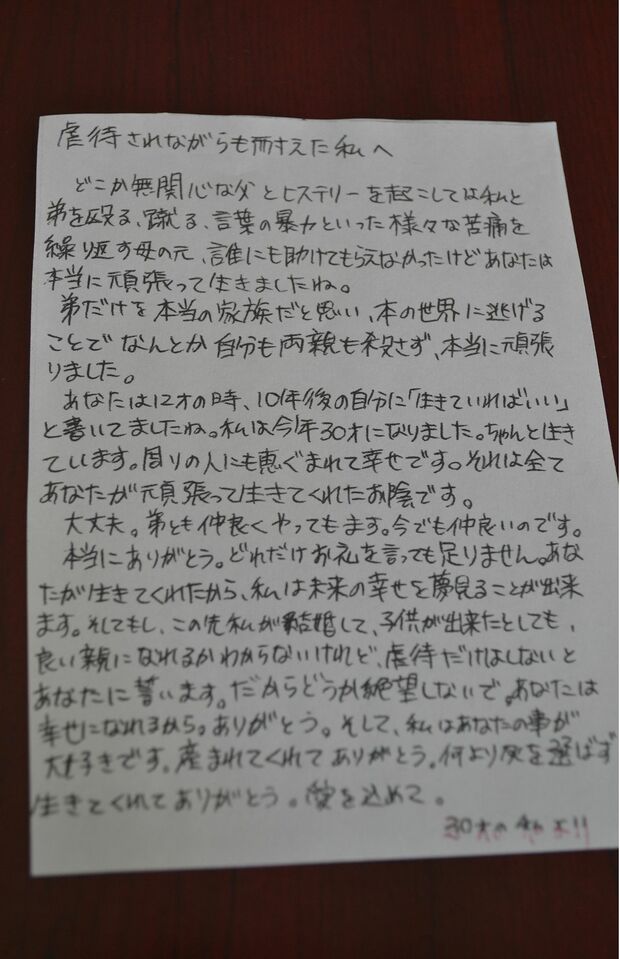 虐待されながらも耐えた私へ
どこか無関心な父とヒステリーを起こしては私と
弟を殴る、蹴る、言葉の暴力といった様々な苦痛を
繰り返す母の元、誰にも助けてもらえなかったけどあなたは
本当に頑張って生きましたね。
弟だけを本当の家族だと思い、本の世界に逃げる
ことでなんとか自分も両親も殺さず、本当に頑張
りました。
あなたは12才の時、10年後の自分に「生きていればいい」
と書いてましたね。私は今年30才になりました。ちゃんと生き
ています。周りの人にも恵ぐまれて幸せです。それは全て
あなたが頑張って生きてくれたお陰です。
大丈夫。弟とも仲良くやってもます。今でも仲良いのです。
本当にありがとう。どれだけお礼を言っても足りません。あな
たが生きてくれたから、私は未来の幸せを夢見ることが出来
ます。そしてもし、この先私が結婚して、子供が出来たとしても、
良い親になれるかわからないけれど、虐待だけはしないと
あなたに誓います。だからどうか絶望しないで。あなたは
幸せになれるから。ありがとう。そして、私はあなたの事が
大好きです。産まれてくれてありがとう。何より死を選ばず
生きてくれてありがとう。愛を込めて。
30才の私より